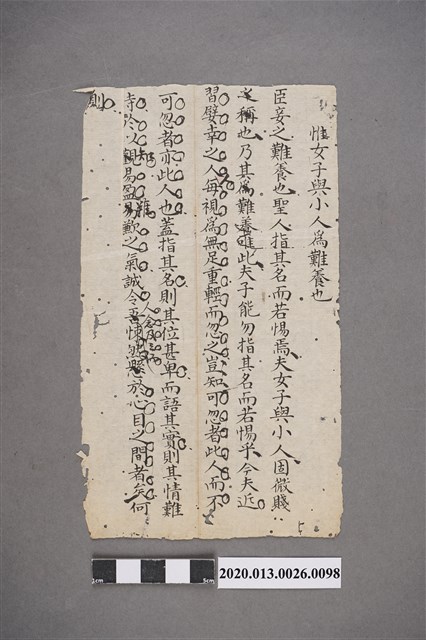 惟女子與小人為難養也
臣妾之難養也聖人指其名而若惕焉夫女子與小人固微賤
之稱也乃其為難養惟此夫子能勿指其名而若惕乎今夫近
習嬖幸之人每視為無足重輕而忽之豈知可忽者此人而不
可忽者亦此人也蓋指其名則其位甚卑而語其實則其情難
寺於以親易盈易歉之氣誠令吾懍然懸於心目之間者矣何
則
2cm
5cm
2020.013.0026.0098